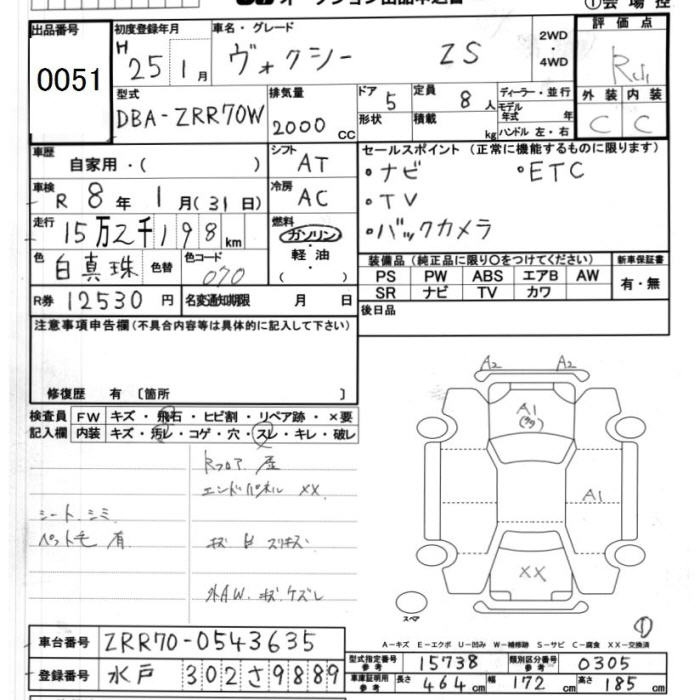 ①会場控
出品番号 0051
初度登録年月 H 25 1月
車名・グレード ヴォクシー ZS
2WD・4WD
評価点
外装 C 内装 C
型式 DBA-ZRR70W
排気量 2000 cc
ドア 5
形状
定員 8人
積載 kg
ディーラー・並行
モデル年式 年
ハンドル 左・右
車歴 自家用・( )
シフト AT
セールスポイント (正常に機能するものに限ります)
・ナビ ・ETC
・TV
・バックカメラ
車検 R 8年 1月(31日)
冷房 AC
走行 15万2千198km
燃料 ガソリン・軽油 ( )
色 白真珠 色替
色コード 070
R券 12530円
名変通知期限 月 日
装備品 (純正品に限り○をつけてください)
PS PW ABS エアB AW
SR ナビ TV カワ
新車保証書 有・無
後日品
注意事項申告欄 (不具合内容等は具体的に記入して下さい)
修復歴 有 〔箇所 〕
検査員記入欄
FW キズ・飛石・ヒビ割・リペア跡・×要
内装 キズ・汚レ・コゲ・穴・スレ・キレ・破レ
Rフロア
エンドパネル XX
シート シミ
ペット毛 有
外AW
A2 A2
A1
A1
XX
スペア
①
A-キズ E-エクボ U-凹み W-補修跡 S-サビ C-腐食 XX-交換済
車台番号 ZRR70-0543635
登録番号 水戸 302さ9889
型式指定番号 参考 15738
類別区分番号 参考 0305
車庫証明用 参考 長さ 464cm 幅 172cm 高さ 185cm